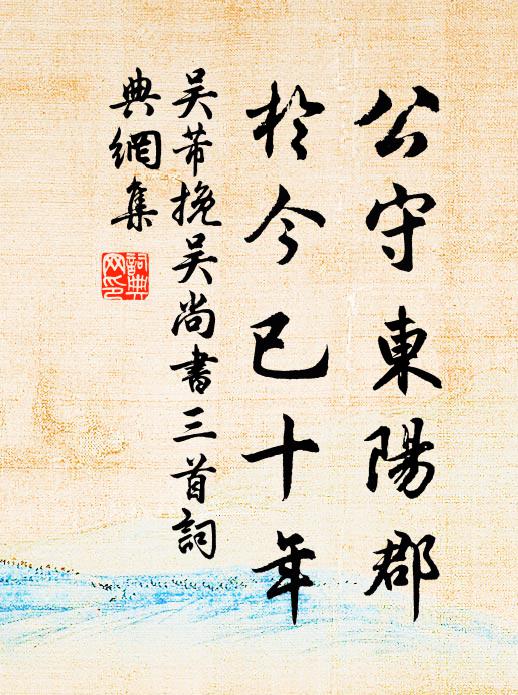 公守東陽郡
於今已十年
吳芾挽吳尚書三首詞
典網集
詞典網印